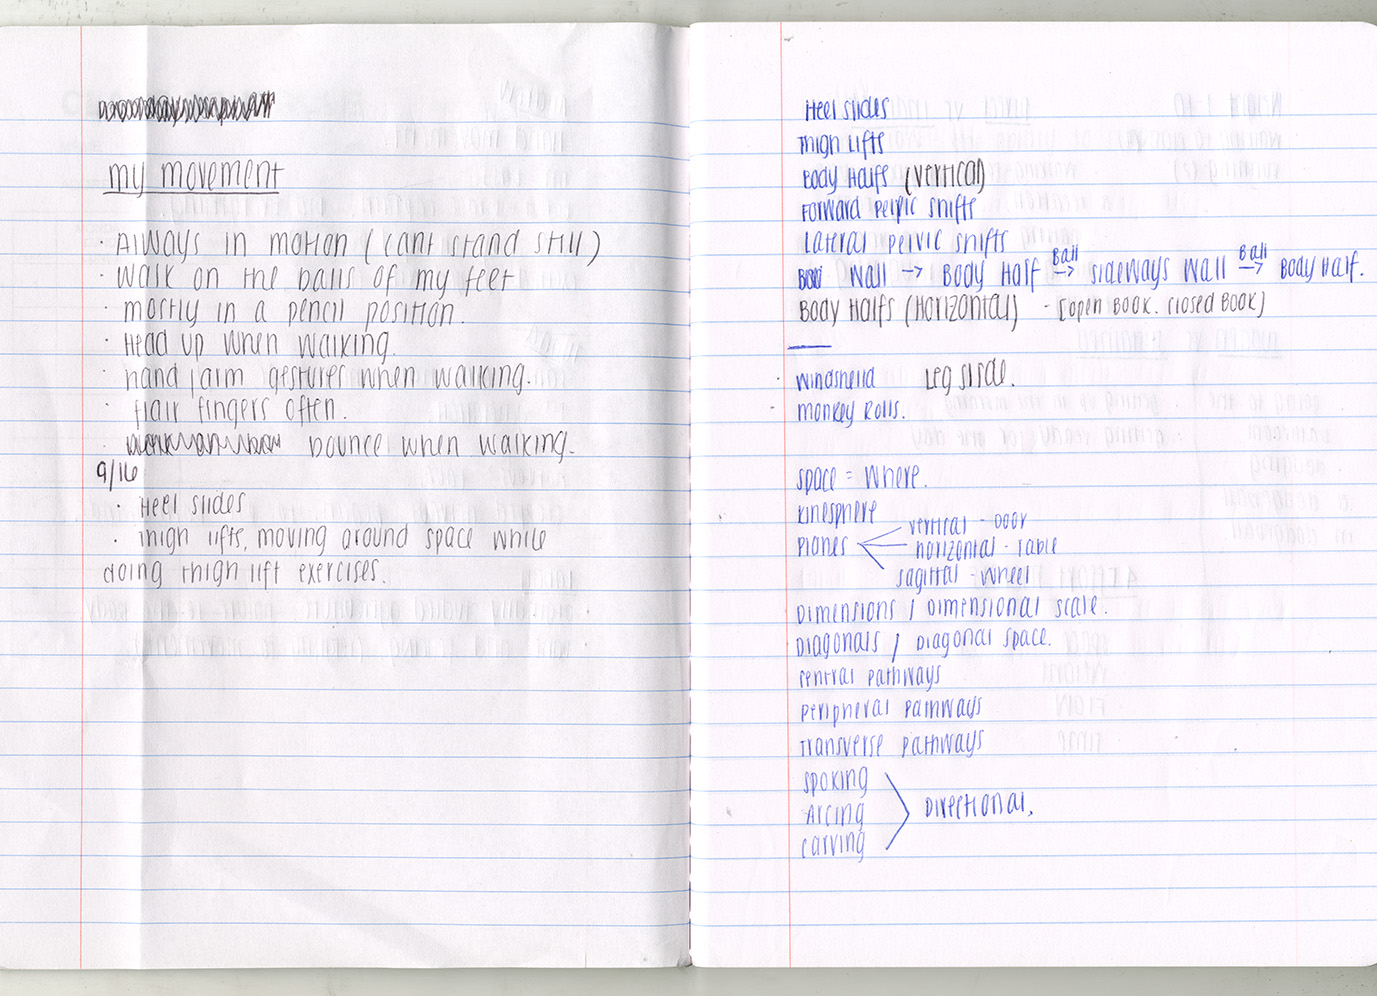 my movement
· Always in motion (cant stand still)
· Walk on the balls of my feet
· mostly in a pencil position.
· Head up when walking.
· hand/arm gestures when walking.
· flair fingers often.
· bounce when walking.
9/16
· Heel slides
· Thigh lifts, moving around space while
doing thigh lift exercises.
Heel slides
Thigh Lifts
Body Halfs (vertical)
Forward Pelvic Shifts
Lateral pelvic shifts
Wall -> Body Half Ball -> Sideways Wall Ball -> Body Half.
Body Halfs (Horizontal) - [open Book. Closed Book]
Leg Slide.
monkey Rolls.
space = Where.
Kinesphere
Planes
vertical - Door
horizontal - Table
sagittal - wheel
Dimensions / Dimensional scale.
Diagonals / Diagonal space.
central pathways
Peripheral Pathways
Transverse pathways
spoking
Arcing
carving
Directional.